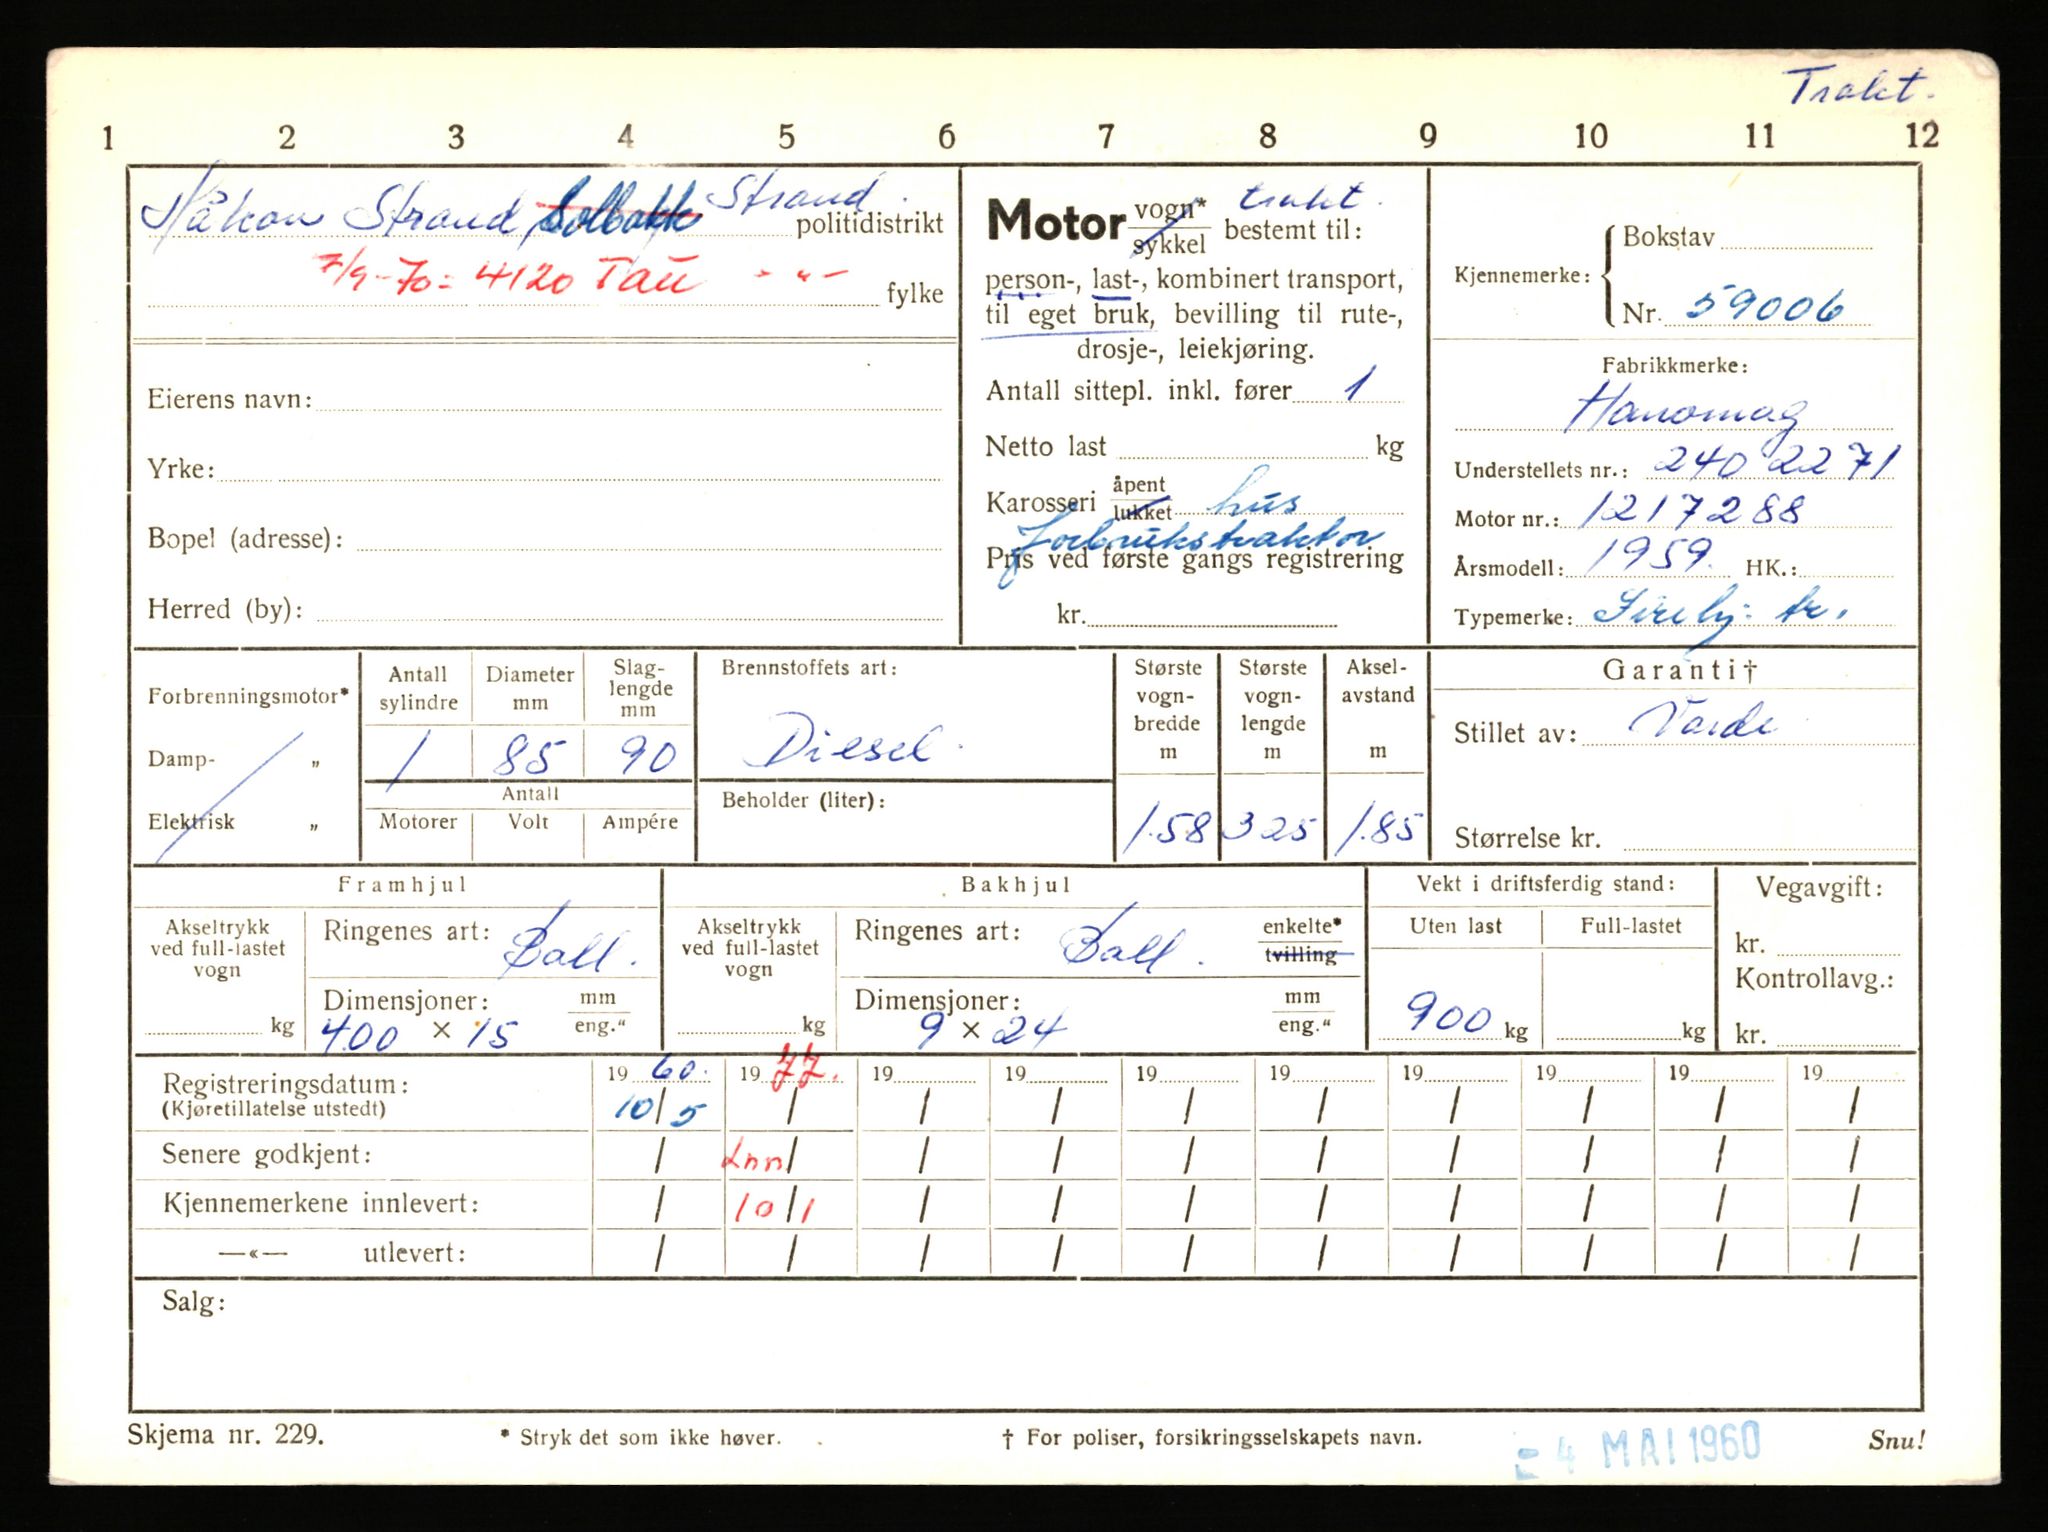 Trakt.
1 2 3 4 5 6 7 8 9 10 11 12
Håkon Strand Solbakk Strand. politidistrikt
7/9-70 = 4120 Tau - " - fylke
Eierens navn:
Yrke:
Bopel (adresse):
Herred (by):
Motor vogn* sykkel bestemt til: trakt.
person-, last-, kombinert transport,
til eget bruk, bevilling til rute-,
drosje-, leiekjøring.
Antall sittepl. inkl. fører 1
Netto last kg
Karosseri åpent lukket hus
forbrukstraktor
Pris ved første gangs registrering
kr.
Kjennemerke: Bokstav
Nr. 59006
Fabrikkmerke:
Hanomag
Understellets nr.: 240 2271
Motor nr.: 1217288
Årsmodell: 1959. HK.:
Typemerke: tr.
Forbrenningsmotor*
Damp- „
Elektrisk „
Antall sylindre Diameter mm Slag- lengde mm
1 85 90
Antall
Motorer Volt Ampére
Brennstoffets art:
Diesel.
Beholder (liter):
Største vogn- bredde m
1.58
Største vogn- lengde m
325
Aksel- avstand m
1.85
Garanti†
Stillet av: Varde
Størrelse kr.
Framhjul
Akseltrykk ved full-lastet vogn
kg
Ringenes art: Ball.
Dimensjoner: mm eng."
400 × 15
Bakhjul
Akseltrykk ved full-lastet vogn
kg
Ringenes art: Ball. enkelte* tvilling
Dimensjoner: mm eng."
9 × 24
Vekt i driftsferdig stand:
Uten last Full-lastet
900 kg kg
Vegavgift:
kr.
Kontrollavg.:
kr.
Registreringsdatum: 19 60. 19 77. 19 19 19 19 19 19 19 19
(Kjøretillatelse utstedt) 10/5 / / / / / / / / /
Senere godkjent: / Inn / / / / / / / / /
Kjennemerkene innlevert: / 10/1 / / / / / / / /
—«— utlevert: / / / / / / / / / /
Salg:
Skjema nr. 229. * Stryk det som ikke høver. † For poliser, forsikringsselskapets navn. - 4 MAI 1960 Snu!